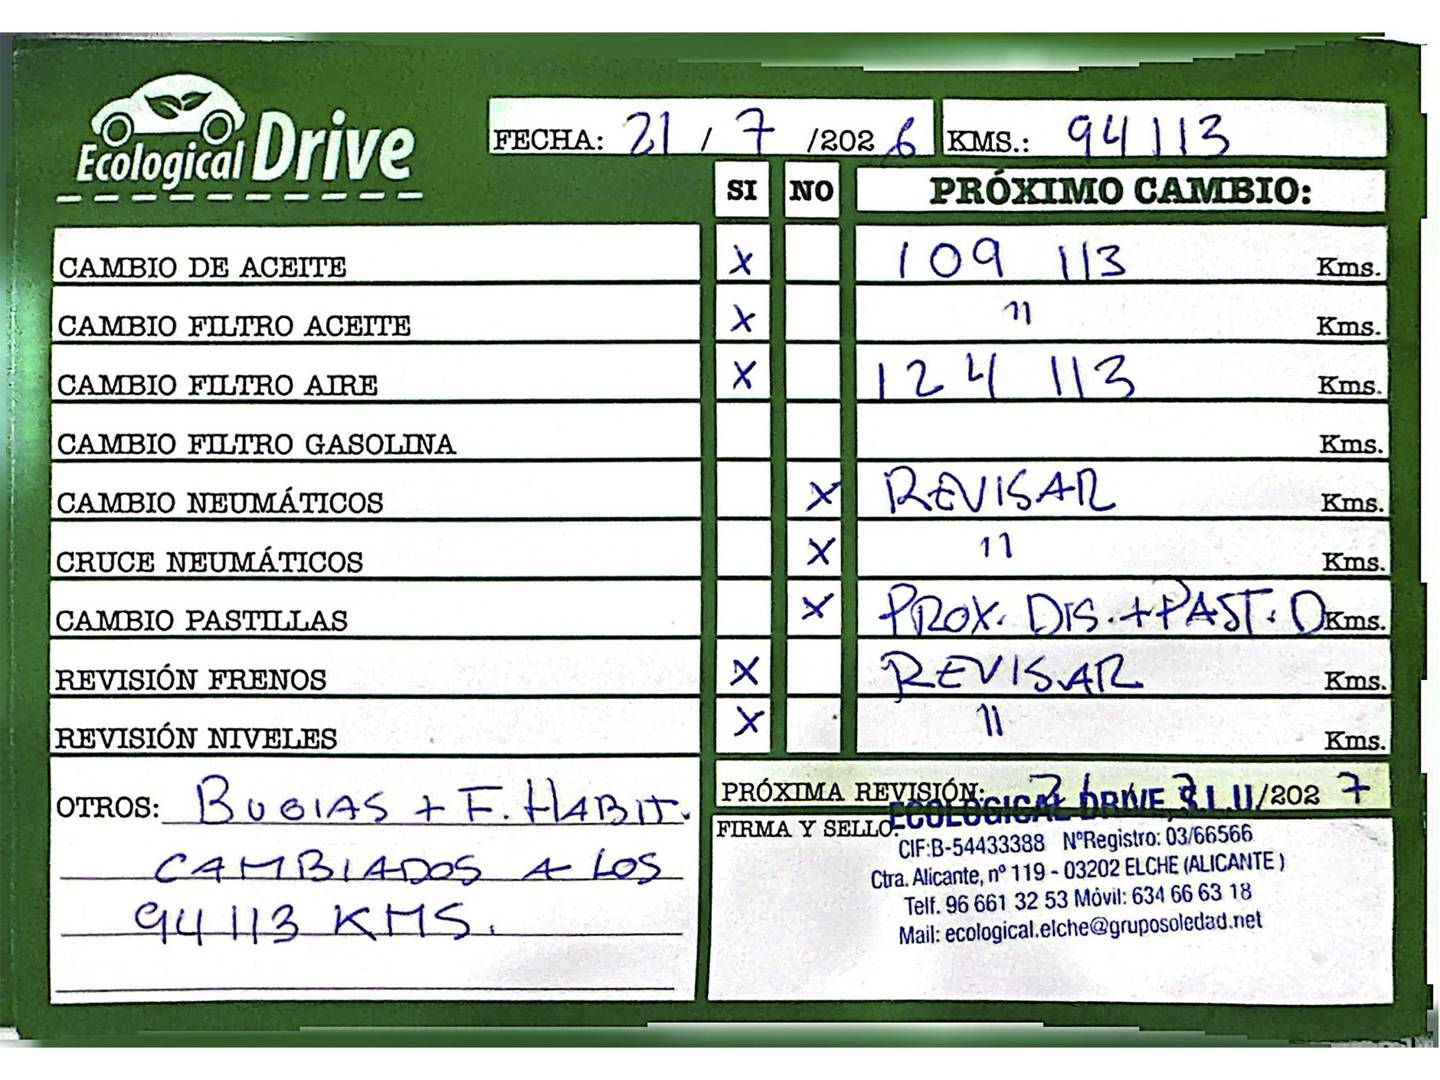 Ecological Drive
FECHA: 21 / 7 /2026 KMS.: 94 113
SI NO PRÓXIMO CAMBIO:
CAMBIO DE ACEITE X 109 113 Kms.
CAMBIO FILTRO ACEITE X " Kms.
CAMBIO FILTRO AIRE X 124 113 Kms.
CAMBIO FILTRO GASOLINA Kms.
CAMBIO NEUMÁTICOS X REVISAR Kms.
CRUCE NEUMÁTICOS X " Kms.
CAMBIO PASTILLAS X PROX. DIS.+PAST. D Kms.
REVISIÓN FRENOS X REVISAR Kms.
REVISIÓN NIVELES X " Kms.
OTROS: BUGIAS + F. HABIT.
CAMBIADOS A LOS
94 113 KMS.
PRÓXIMA REVISIÓN: /2027
FIRMA Y SELLO:
ECOLOGICAL DRIVE, S.L.U
CIF:B-54433388 NºRegistro: 03/66566
Ctra. Alicante, nº 119 - 03202 ELCHE (ALICANTE )
Telf. 96 661 32 53 Móvil: 634 66 63 18
Mail: ecological.elche@gruposoledad.net